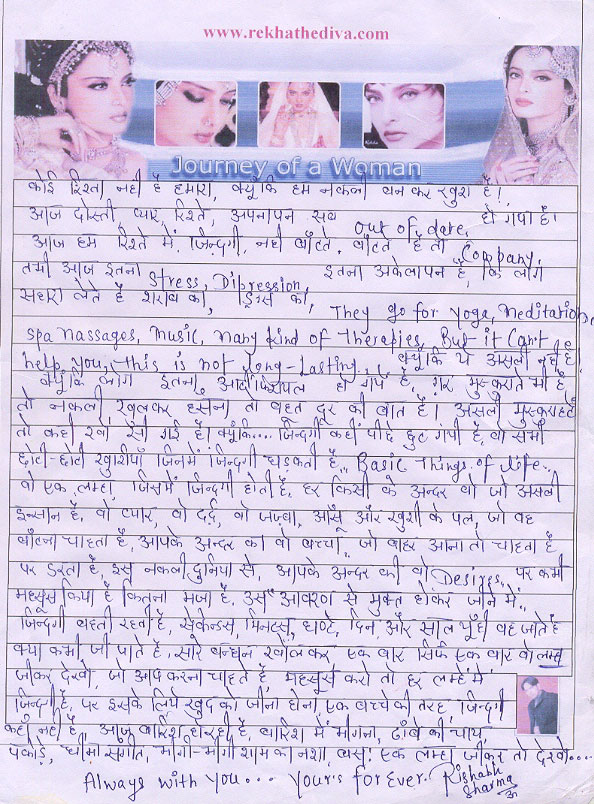 www.rekhathediva.com
Journey of a Woman
कोई रिश्ता नहीं है हमारा, क्यूंकि हम नकली बन कर खुश हैं!,
आज दोस्ती, प्यार, रिश्ते, अपनापन सब out of date, हो गया है!
आज हम रिश्ते में ज़िन्दगी, नहीं बाँटते, बाँटते हैं तो Company,
तभी आज इतना Stress, Dipression, इतना अकेलापन है, कि लोग
सहारा लेते हैं शराब का, ड्रग्स का, They go for Yoga, Meditation
Spa Massages, Music, many kind of Therapies, But it Can't
help you, this is not long-lasting. क्यूंकि ये असली नहीं है!
क्यूंकि लोग इतना आर्टिफिशियल हो गये हैं, गर मुस्कराते भी हैं
तो नकली खुलकर हसना तो बहुत दूर की बात है! असली मुस्कराहटें
तो कहीं खो सी गई है! क्यूंकि.... ज़िन्दगी कहीं पीछे छुट गयी है, वो सभी
छोटी-छोटी खुशीयाँ जिनमें ज़िन्दगी धड़कती है.. Basic things of life..
वो एक लम्हा, जिसमें ज़िन्दगी होती है, हर किसी के अन्दर वो जो असली
इन्सान है, वो प्यार, वो दर्द, वो जज़्बा, आँसू और खुशी के पल, जो वह
बाँटना चाहता है, आपके अन्दर का वो बच्चा, जो बाहर आना तो चाहता है
पर डरता है, इस नकली दुनिया से, आपके अन्दर की वो Desires, पर कभी
महसूस किया है कितना मज़ा है, उस आवरण से मुक्त होकर जीने में..
ज़िन्दगी बहती रहती है, सेकेन्डस, मिनट्स, घण्टे, दिन और साल यूँही बह जाते हैं
क्या कभी जी पाते हैं, सारे बन्धन खोल कर, एक बार सिर्फ एक बार वो लम्हा
जीकर देखो, जो आप करना चाहते हैं, महसूस करो तो हर लम्हें में
ज़िन्दगी है, पर इसके लिये खुद को जीना होगा, एक बच्चे की तरह, ज़िन्दगी
कहीं नहीं है, आज बारिश हो रही है, बारिश में भीगना, ढाबे की चाय,
पकोड़े, धीमा संगीत, भीगी-भीगी शाम का नशा, बस! एक लम्हा जीकर तो देखो....
Always with you... Your's for ever. Rishabh
Sharma
ॐ